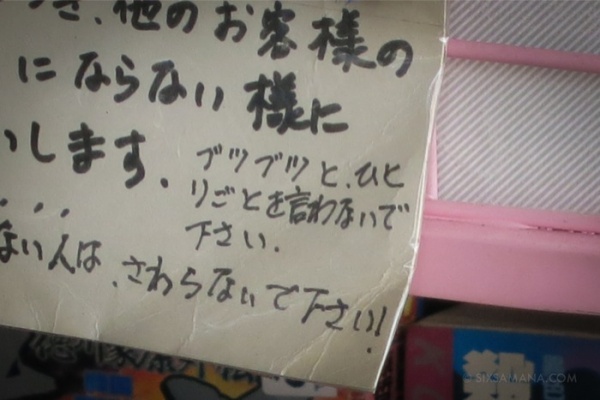 き、他のお客様の
にならない様に
いします。
ブツブツと、ひと
りごとを言わないで
下さい。
ない人は、さわらないで下さい!
SIXSAMANA.COM